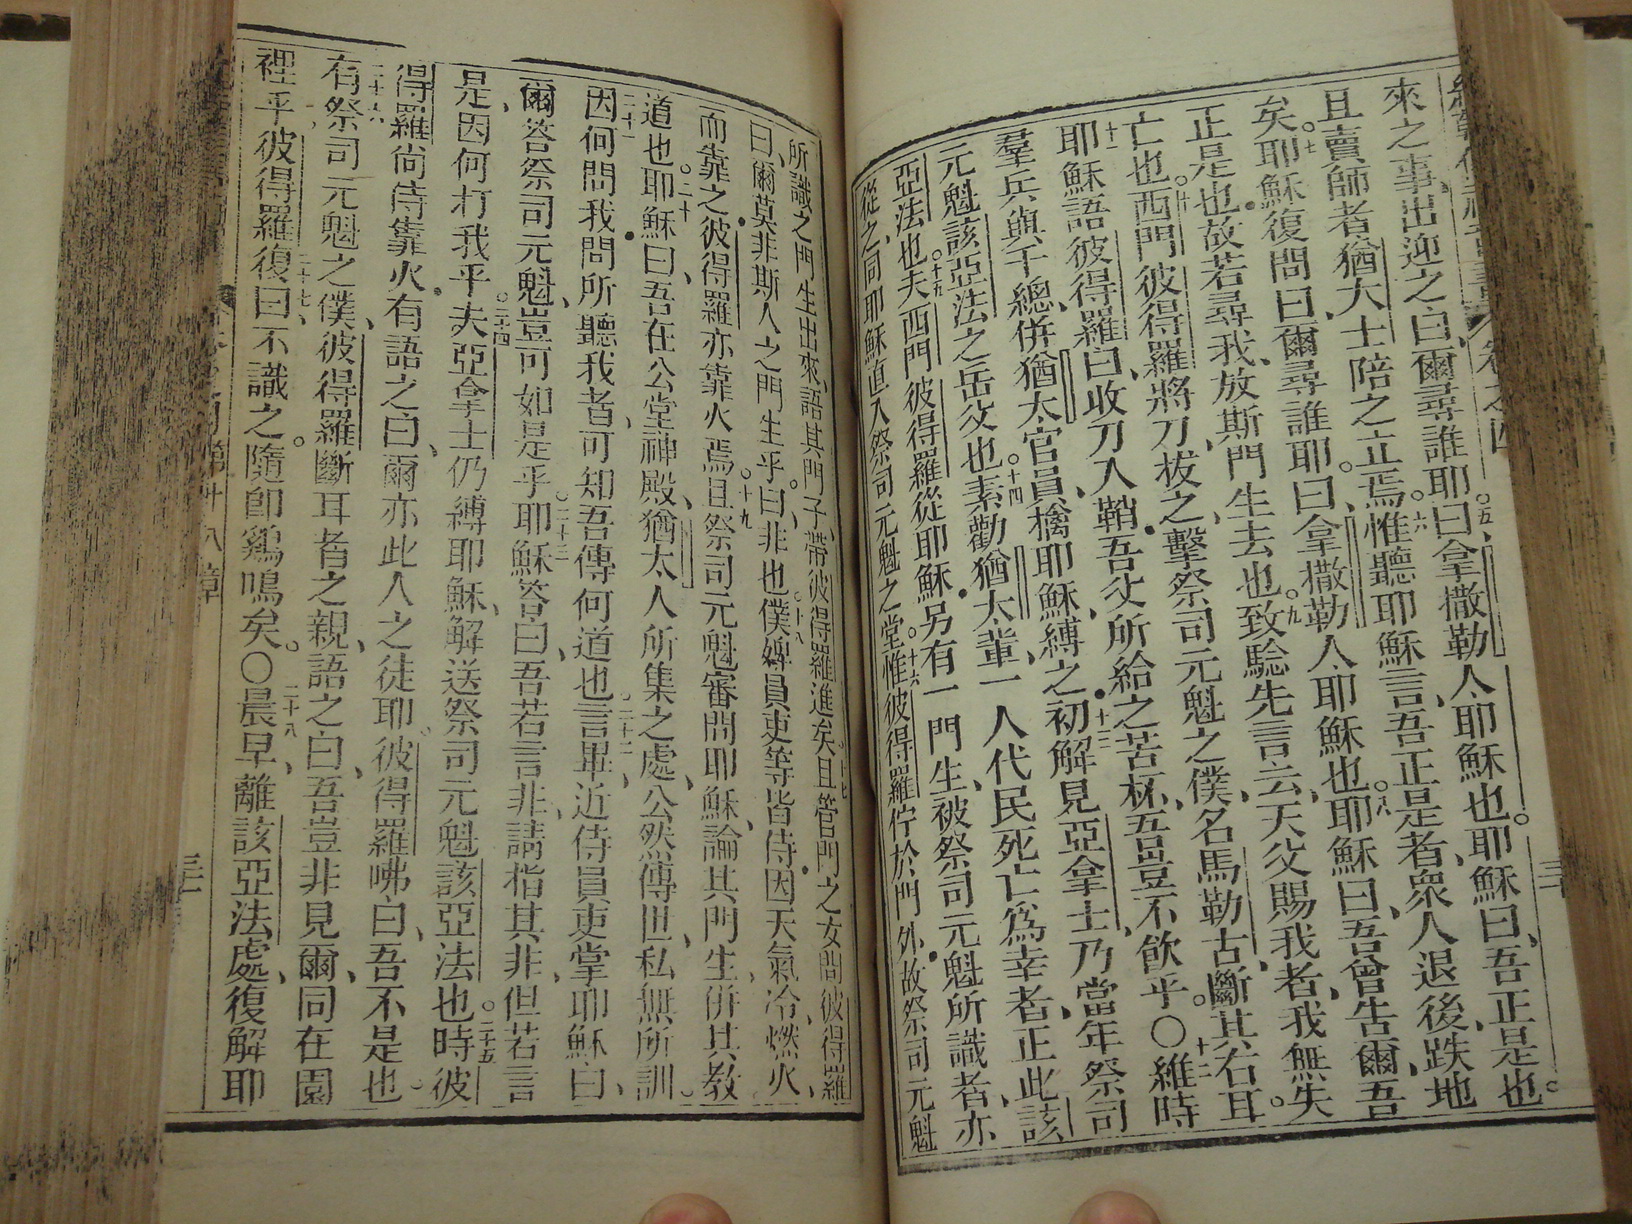 來之事、出迎之曰、爾尋誰耶、曰、拿撒勒人耶穌也。耶穌曰、吾正是也。
且賣師者、猶大士陪之立焉。惟聽耶穌言、吾正是者、衆人退後、跌地
矣。耶穌復問曰、爾尋誰耶。曰、拿撒勒人耶穌也。耶穌曰、吾曾告爾、吾
正是也。故若尋我、放斯門生去也。致騐先言云、天父賜我者、我無失
亡也。西門彼得羅將刀、拔之、擊祭司元魁之僕、名馬勒古、斷其右耳。
耶穌語彼得羅曰、收刀入鞘。吾父所給之苦杯、吾豈不飲乎。〇維時
羣兵與千總、併猶太官員、擒耶穌、縛之。初解見亞拿士、乃當年祭司
元魁該亞法之岳父也。素勸猶太輩、一人代民死亡、爲幸者、正此該
亞法也。夫西門彼得羅從耶穌。另有一門生、被祭司元魁所識者、亦
從之、同耶穌直入祭司元魁之堂。惟彼得羅佇於門外。故祭司元魁
所識之門生出來、語其門子、帶彼得羅進矣。且管門之女問彼得羅
曰、爾莫非斯人之門生乎。曰、非也。僕婢員吏等皆侍。因天氣冷、燃火、
而靠之。彼得羅亦靠火焉。且祭司元魁審問耶穌、論其門生、併其教
道也。耶穌曰、吾在公堂神殿、猶太人所集之處、公然傳世、私無所訓。
因何問我、問所聽我者、可知吾傳何道也。言畢、近侍員吏掌耶穌曰、
爾答祭司元魁、豈可如是乎。耶穌答曰、吾若言非、請指其非、但若言
是、因何打我乎。夫亞拿士仍縛耶穌、解送祭司元魁該亞法也。時彼
得羅尚侍靠火。有語之曰、爾亦此人之徒耶。彼得羅咈曰、吾不是也。
有祭司元魁之僕、彼得羅斷耳者之親、語之曰、吾豈非見爾同在園
裡乎。彼得羅復曰、不識之。隨卽鷄鳴矣。〇晨早、離該亞法處、復解耶